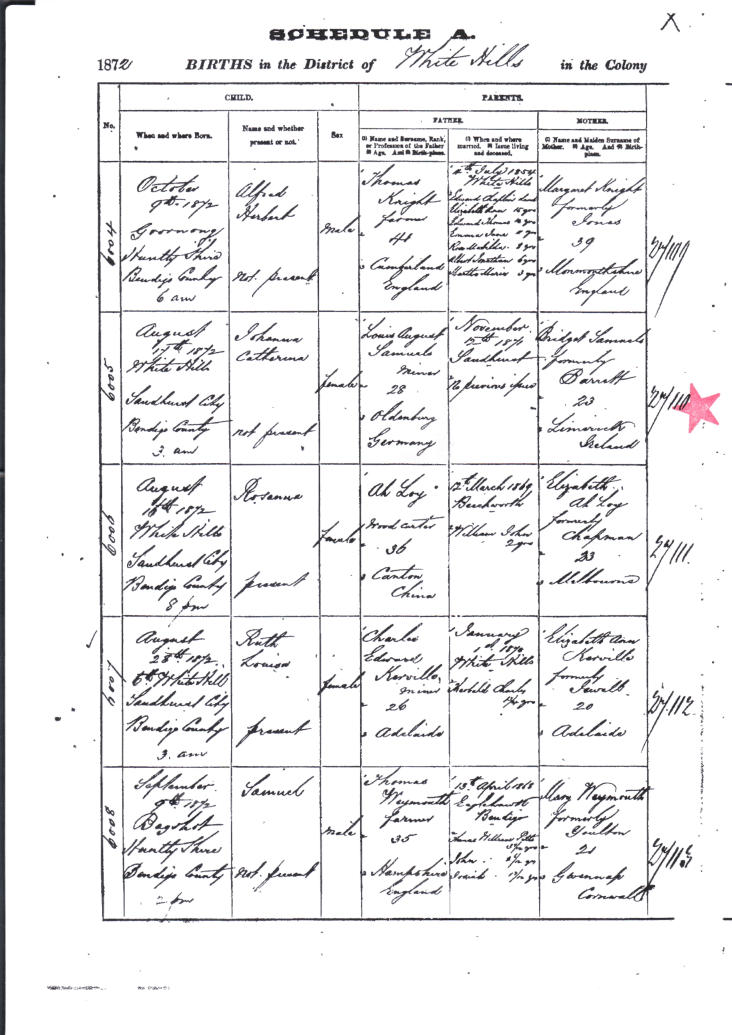 SCHEDULE A.
X
1872 BIRTHS in the District of White Hills in the Colony
CHILD.
PARENTS.
No.
When and where Born.
Name and whether
present or not.
Sex
FATHER.
MOTHER.
(1) Name and Surname, Rank,
or Profession of the Father
Age. And Birth-place.
(1) When and where
married. Issue living
and deceased.
(1) Name and Maiden Surname of
Mother. Age. And Birth-
place.
6004
October
9th 1872
Goornong
Huntly Shire
Bendigo County
6 am
Alfred
Herbert
not present
Male
Thomas
Knight
farmer
Cumberland
England
July 1854
White Hills
Margaret Knight
formerly
Jonas
39
Monmouthshire
England
27109
6005
August
17th 1872
White Hills
Sandhurst City
Bendigo County
3. am
Johanna
Catherina
not present
female
Louis August
Samuels
Miner
28
Oldenburg
Germany
November
15th 1871
Sandhurst
No previous issue
Bridget Samuels
formerly
Barrett
23
Limerick
Ireland
27110
6006
August
16th 1872
White Hills
Sandhurst City
Bendigo County
8 pm
Rosanna
present
female
Ah Loy
Wood carter
36
Canton
China
12th March 1869
Beechworth
William John
2 yrs
Elizabeth
Ah Loy
formerly
Chapman
23
Melbourne
27111.
6007
August
28th 1872
White Hills
Sandhurst City
Bendigo County
3. am
Ruth
Louisa
present
female
Charles
Edward
Kerville
miner
26
Adelaide
January
1st 1870
White Hills
Charles
Elizabeth Ann
Kerville
formerly
Sewell
20
Adelaide
27112
6008
September
9th 1872
Bagshot
Huntly Shire
Bendigo County
2 pm
Samuel
not present
Male
Thomas
Weymouth
farmer
35
Hampshire
England
13th April 1868
Eaglehawk
Bendigo
John
Mary Weymouth
formerly
21
Gwennap
Cornwall
27113